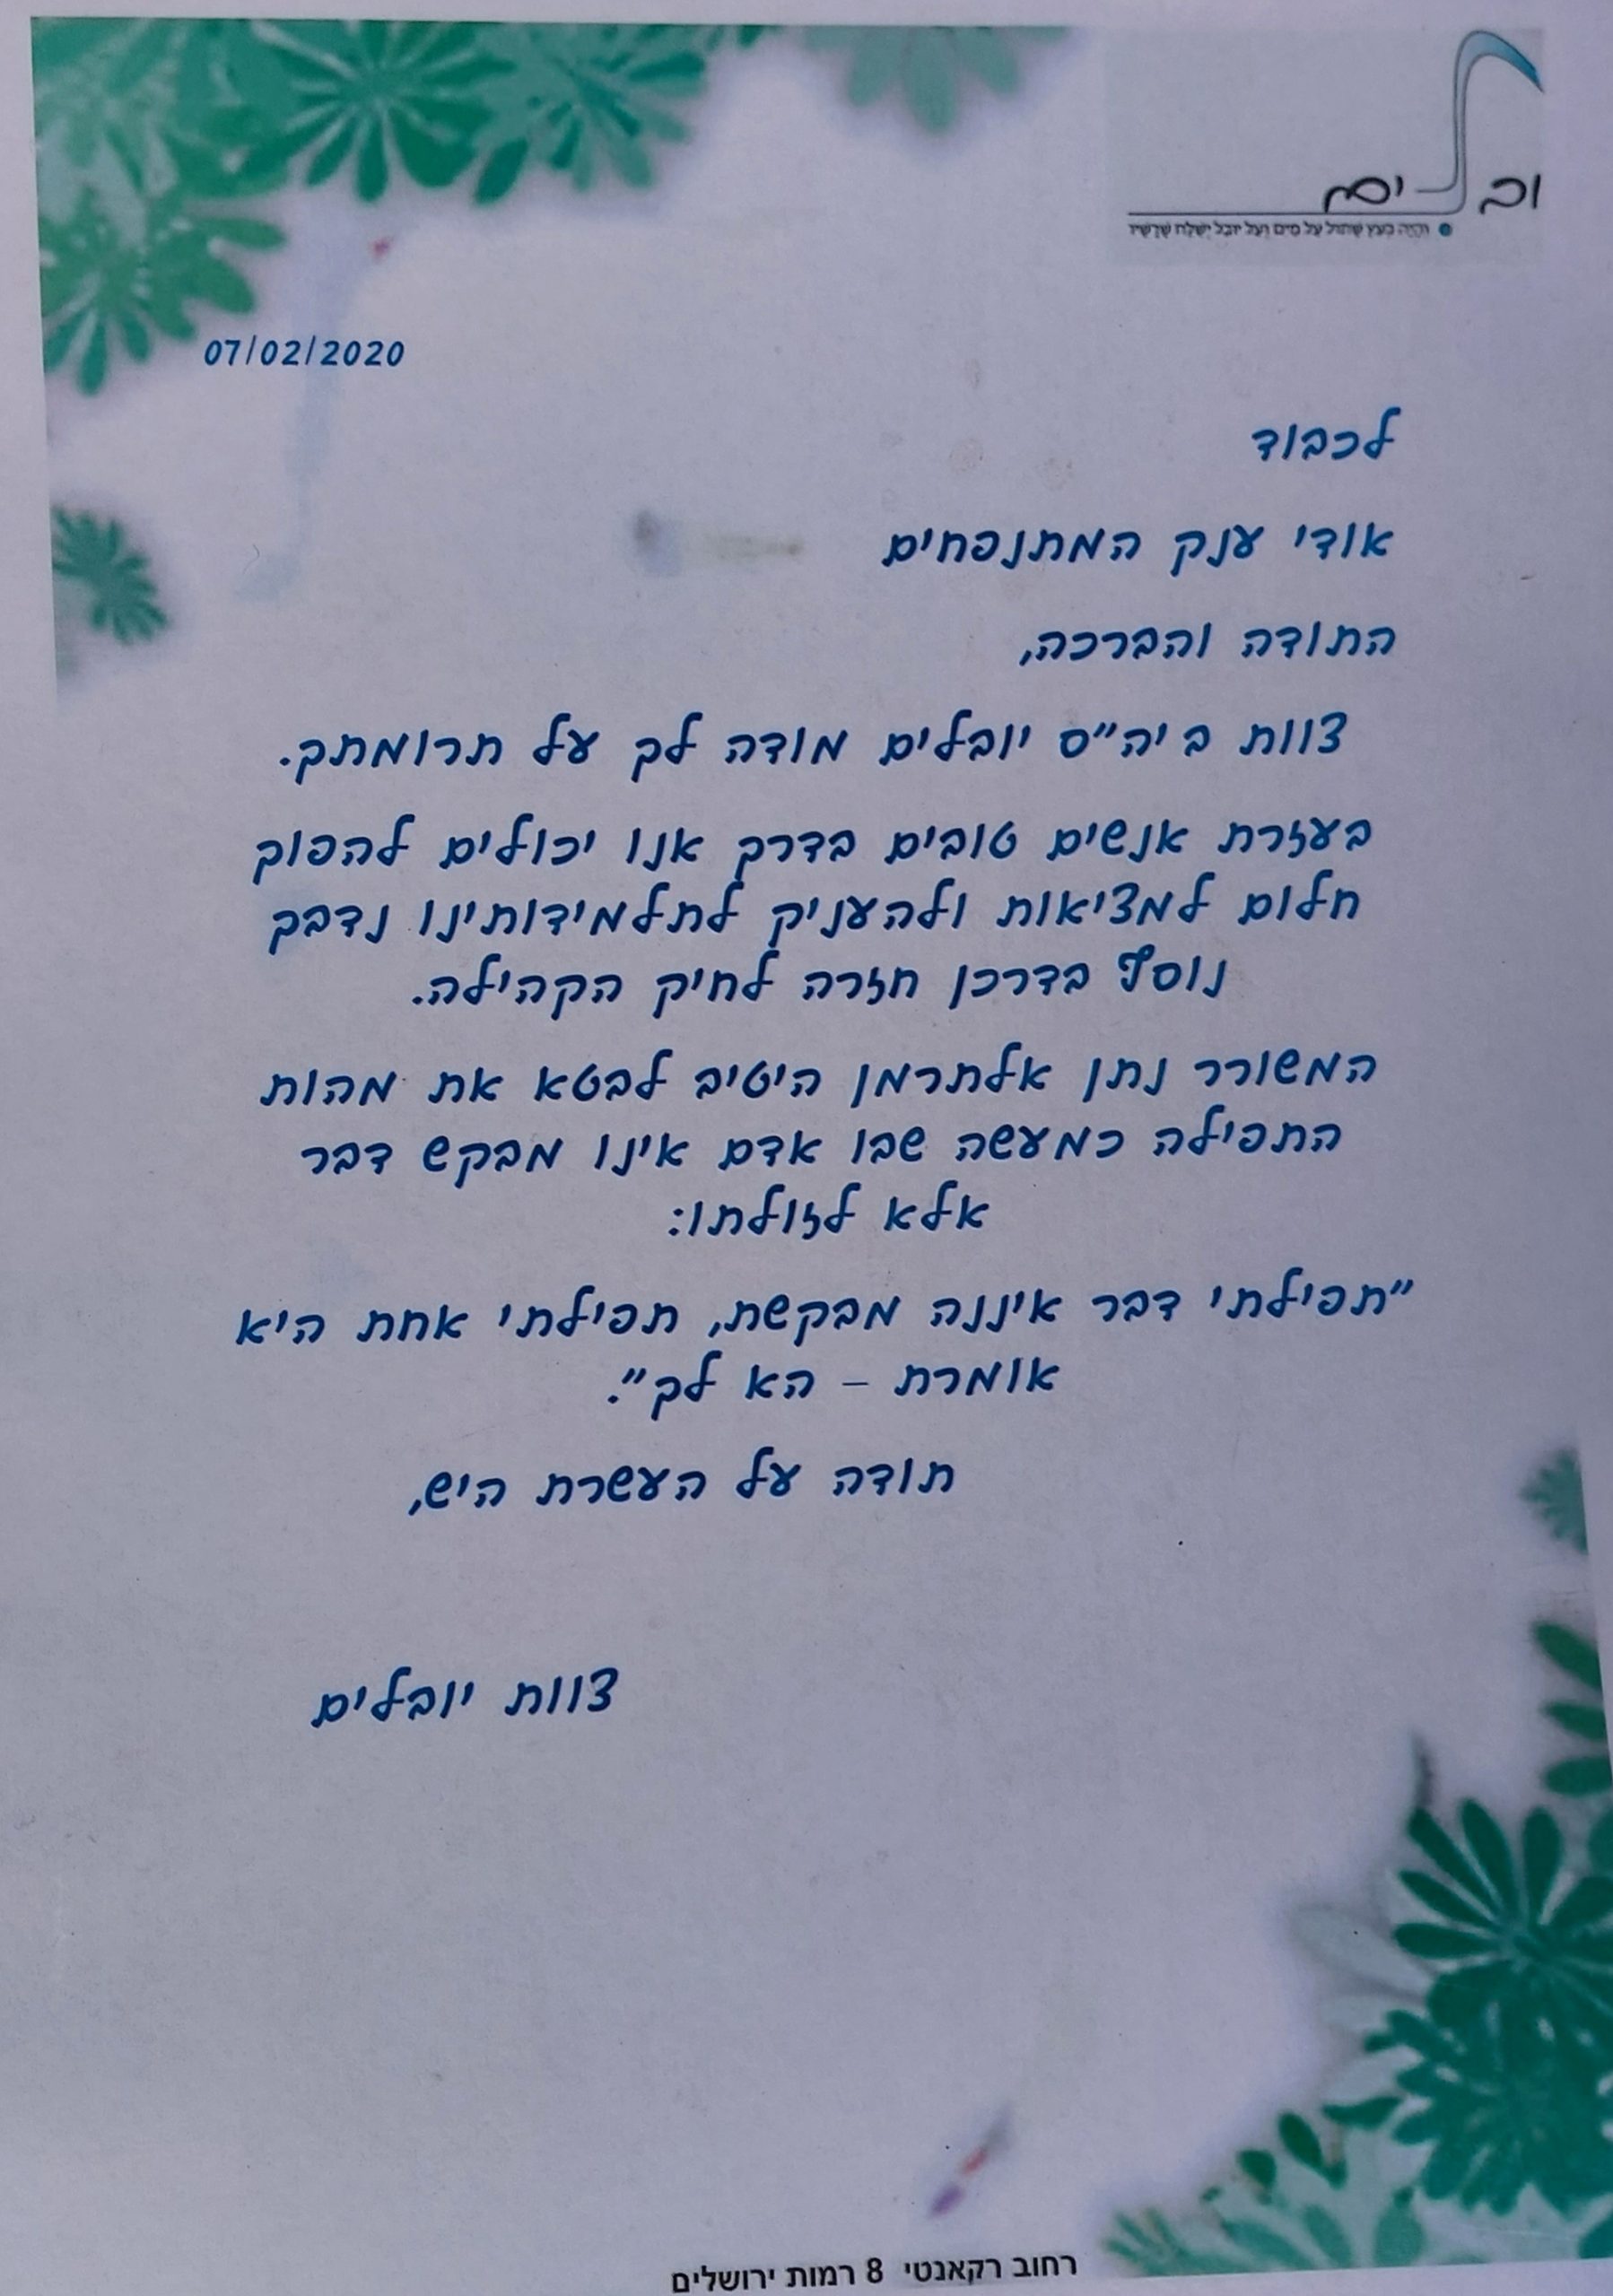 יובלים
והיה כעץ שתול על מים ועל יובל ישלח שרשיו
07/02/2020
לכבוד
אודי ענק המתנפחים
התודה והברכה,
צוות ביה"ס יובלים מודה לך על תרומתך.
בעזרת אנשים טובים בדרך אנו יכולים להפוך
חלום למציאות ולהעניק לתלמידותינו נדבך
נוסף בדרכן חזרה לחיק הקהילה.
המשורר נתן אלתרמן היטיב לבטא את מהות
התפילה כמעשה שבו אדם אינו מבקש דבר
אלא לזולתו:
"תפילתי דבר איננה מבקשת, תפילתי אחת היא
אומרת – הא לך".
תודה על העשרת היש,
צוות יובלים
רחוב רקאנטי 8 רמות ירושלים